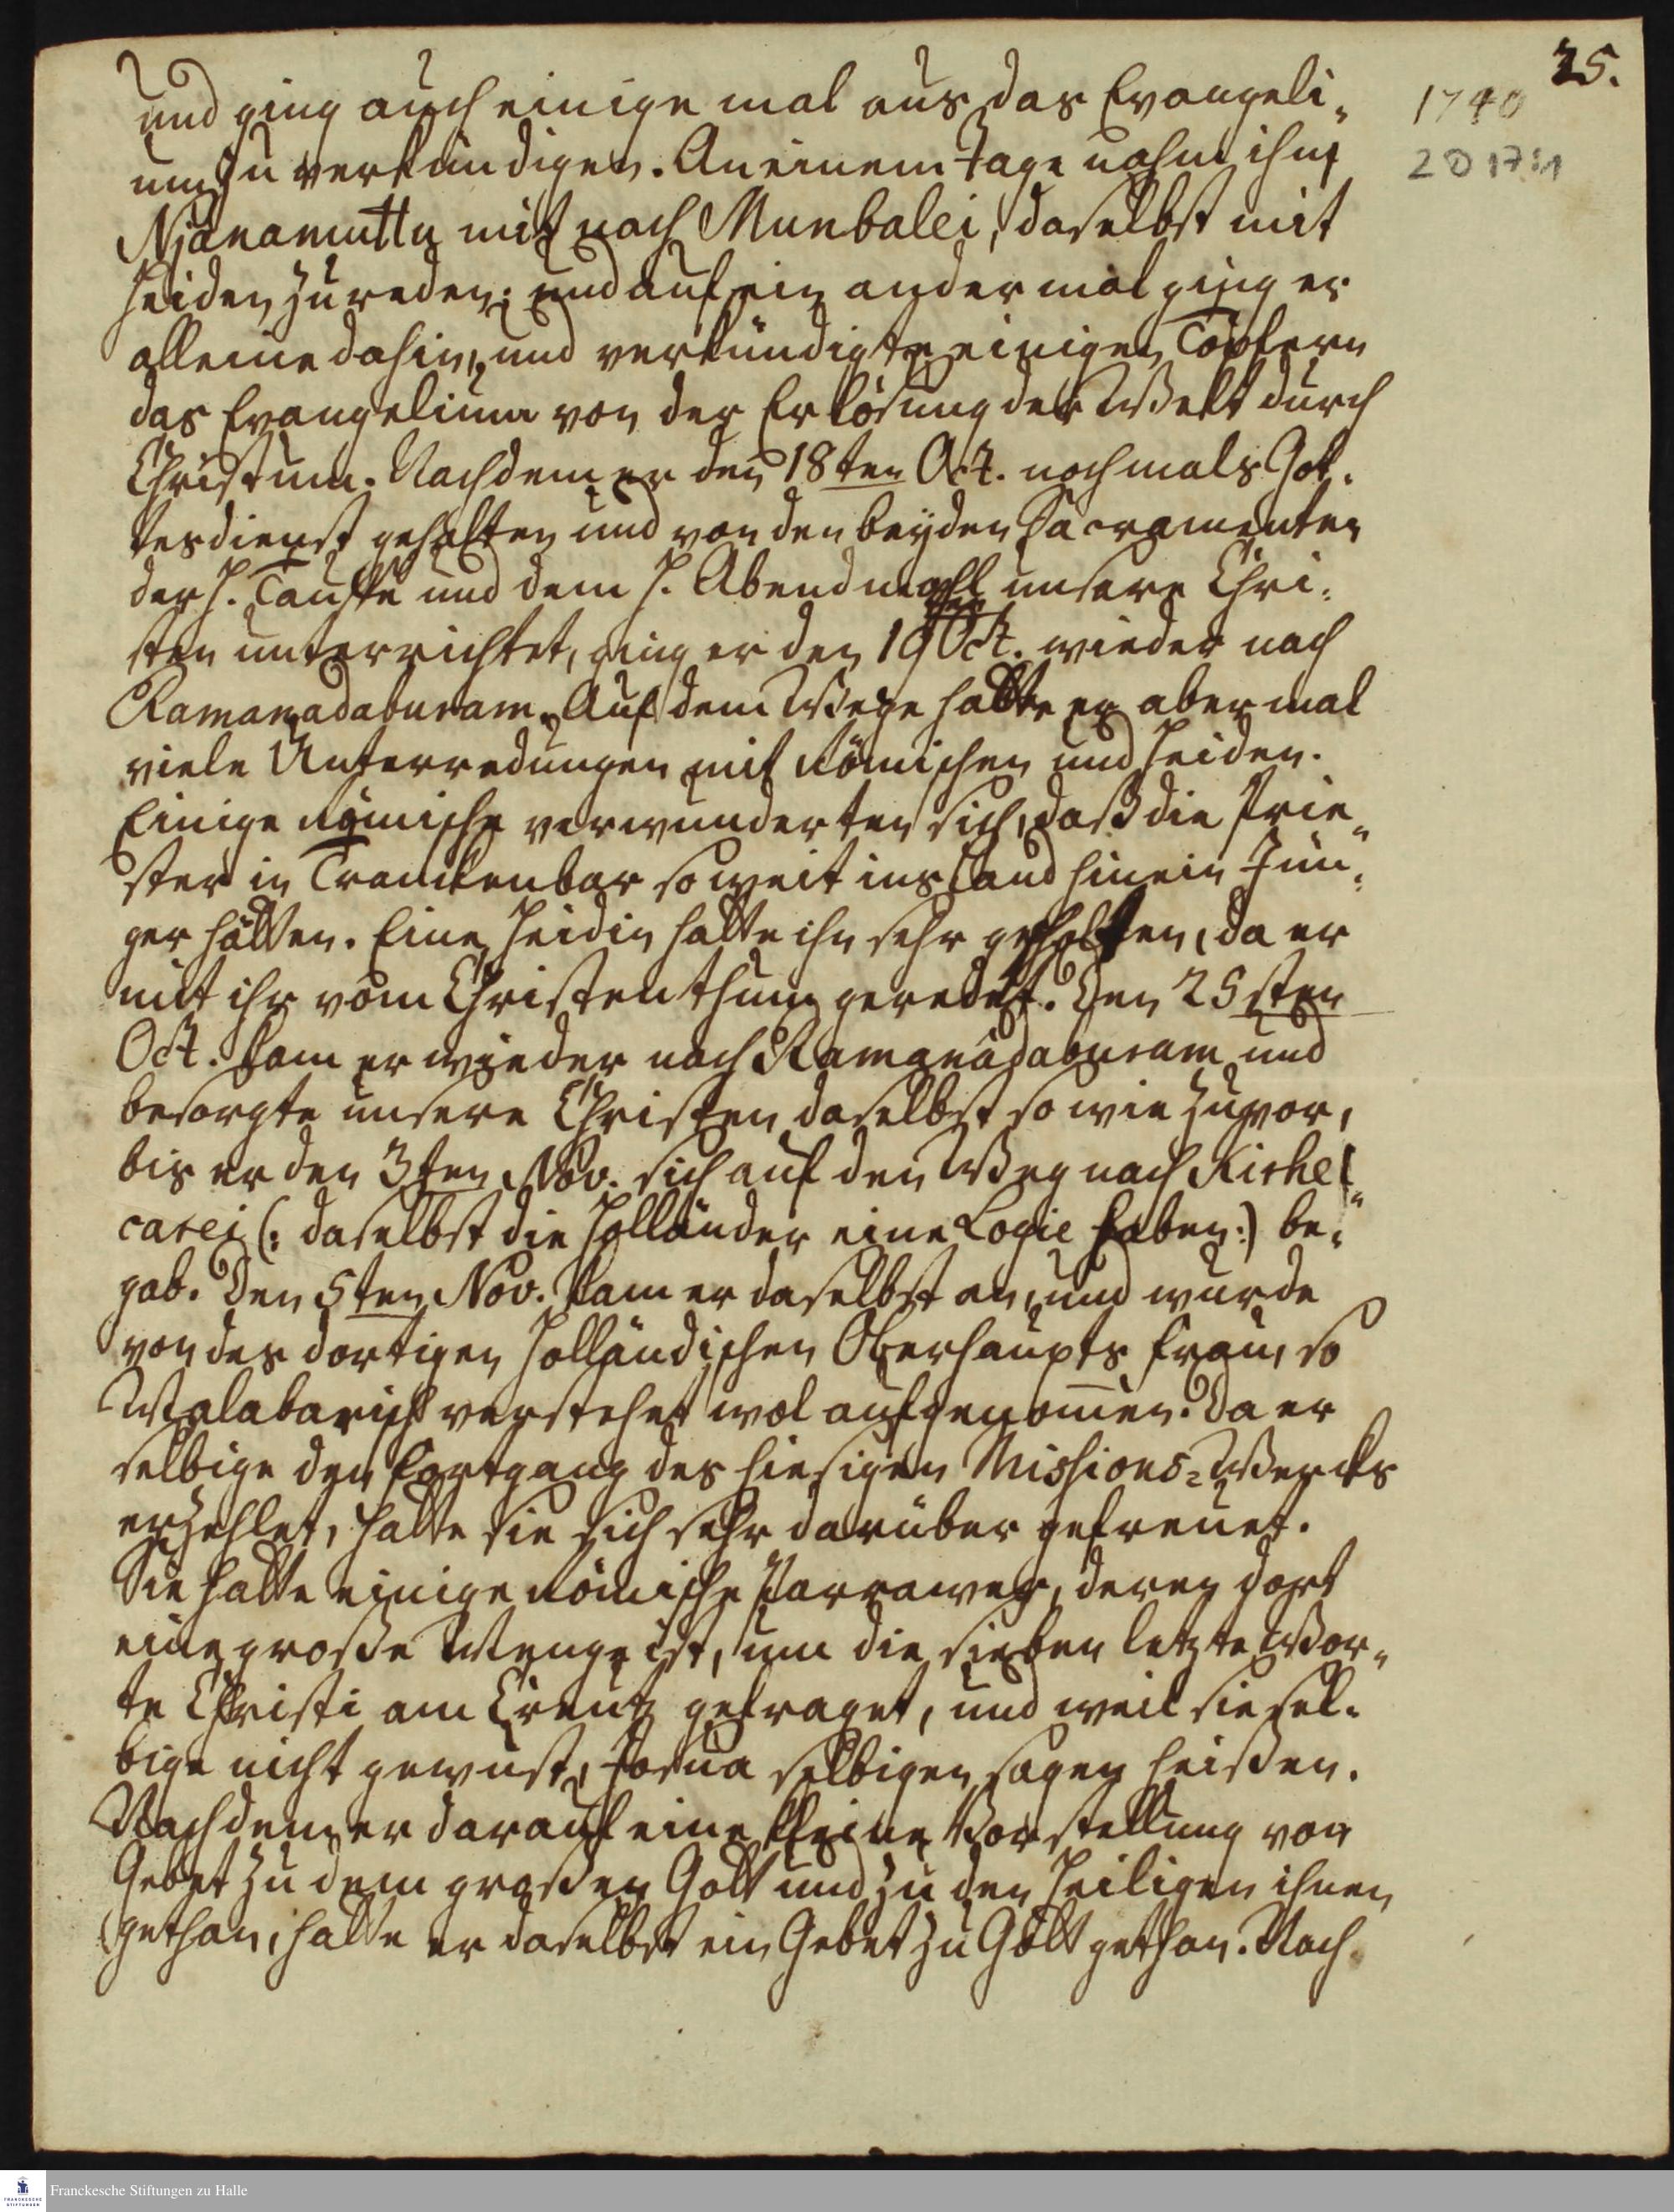 25.
1740
und ging auch einige mal aus das Evangeli-
um zu verkündigen. An einem Tage nahm ihn
Njánamuttu mit nach Munbalei, daselbst mit
Heiden zu reden; und auf ein ander mal ging er
alleine dahin, und verkündigte einigen Töpfern
das Evangelium von der Erlösung der Welt durch
Christum. Nachdem er den 18ten Oct. nochmals Got-
tesdienst gehalten und von den beyden Sacramenten
der H. Tauffe und dem H. Abendmahl unsere Chri-
sten unterrichtet, ging er den 19ten Oct. wieder nach
Ramanadaburam. Auf dem Wege hatte er abermal
viele Unterredungen mit Römischen und Heiden.
Einige Römische verwunderten sich, daß die Prie-
ster in Tranckenbar so weit ins Land hinein Jün-
ger hätten. Eine Heidin hatte ihn sehr gescholten, da er
mit ihr vom Christenthum geredet. Den 25sten
Oct. kam er wieder nach Ramanádaburam und
besorgte unsere Christen daselbst so wie zuvor,
bis er den 3ten Nov. sich auf den Weg nach Kirhel-
carei (: daselbst die Holländer eine Logie haben :) be-
gab. Den 5ten Nov. kam er daselbst an, und wurde
von des dortigen Holländischen Oberhaupts Frau, so
Malabarisch verstehet wol aufgenommen. Da er
selbige den Fortgang des hiesigen Missions-Wercks
erzehlet, hatte sie sich sehr darüber gefreuet.
Sie hatte einige Römische Parrawer, deren dort
eine große Menge ist, um die sieben letzte Wor-
te Christi am Creutz gefraget, und weil sie sel-
bige nicht gewust, Josua selbigen sagen heißen.
Nachdem er darauf eine kleine Vorstellung von
Gebet zu dem großen Gott und zu den Heiligen ihnen
gethan, hatte er daselbst ein Gebet zu Gott gethan. Nach
Franckesche Stiftungen zu Halle